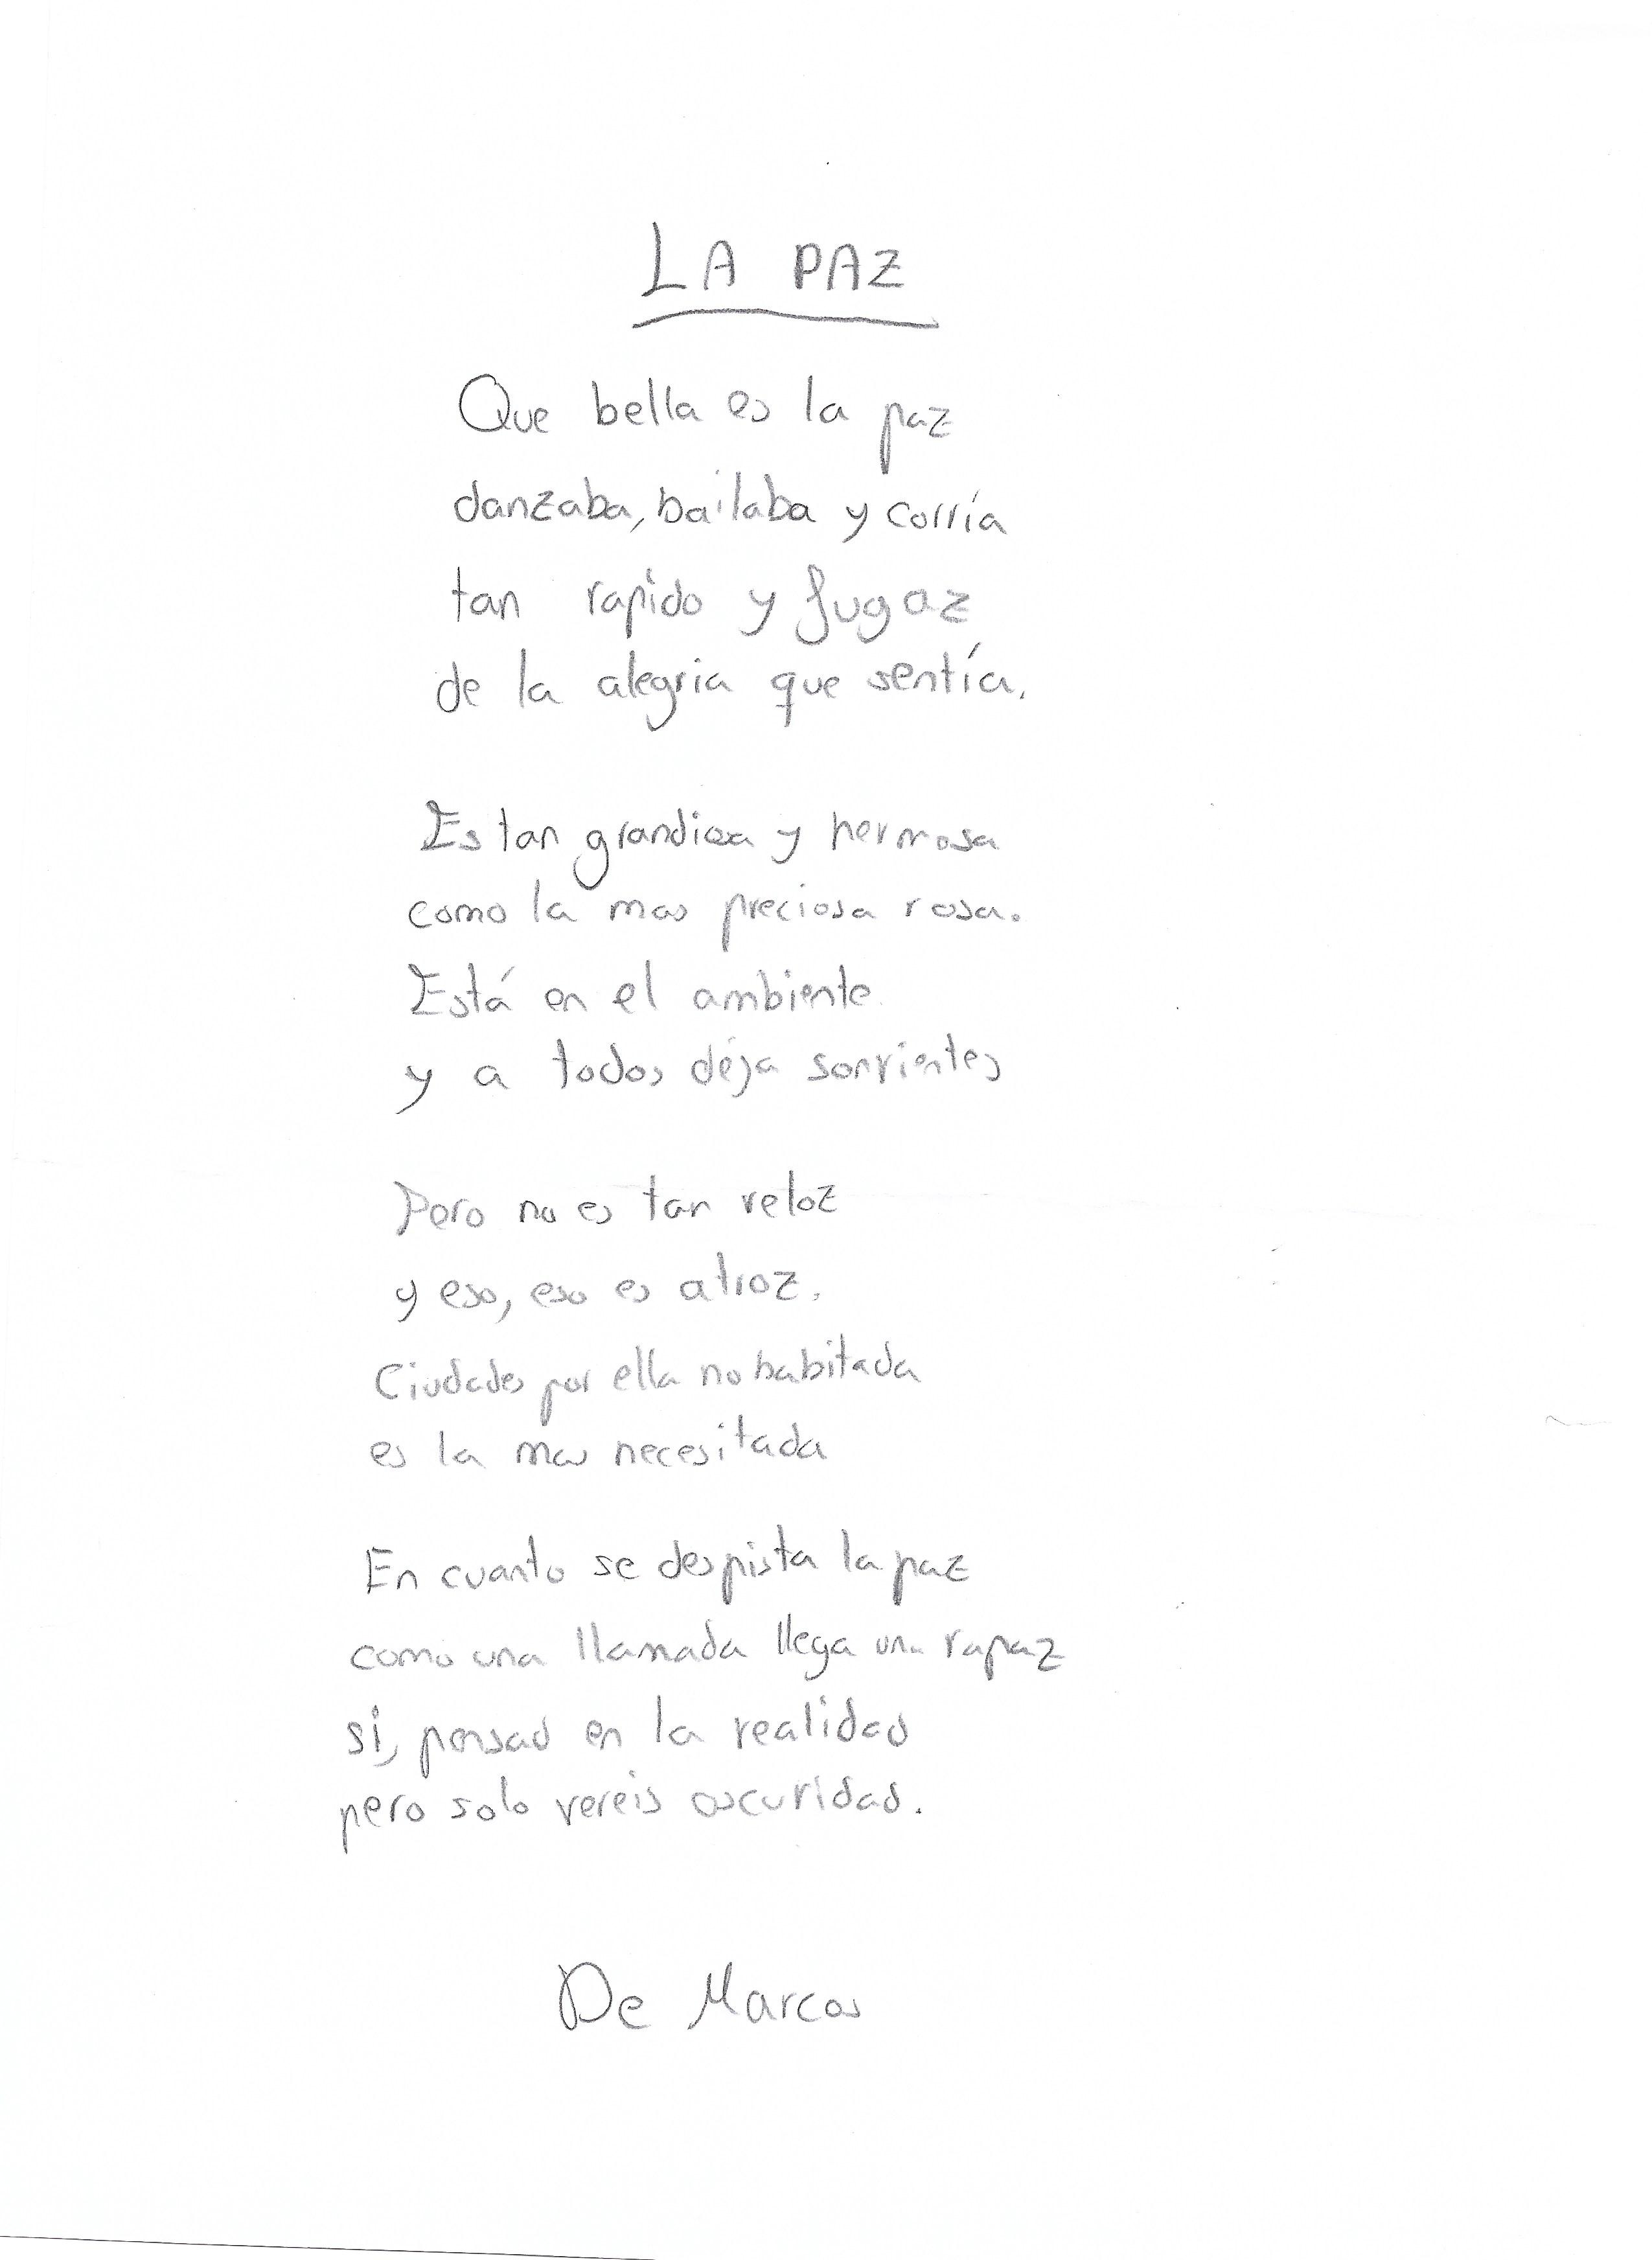 LA PAZ
Que bella es la paz
danzaba, bailaba y corría
tan rapido y fugaz
de la alegria que sentía.
Es tan grandiosa y hermosa
como la mas preciosa rosa.
Está en el ambiente
y a todos deja sonrientes
Pero no es tan veloz
y eso, eso es atroz.
Ciudades por ella no habitada
es la mas necesitada
En cuanto se despista la paz
como una llamada llega una rapaz
si, pensad en la realidad
pero solo vereis oscuridad.
De Marcos